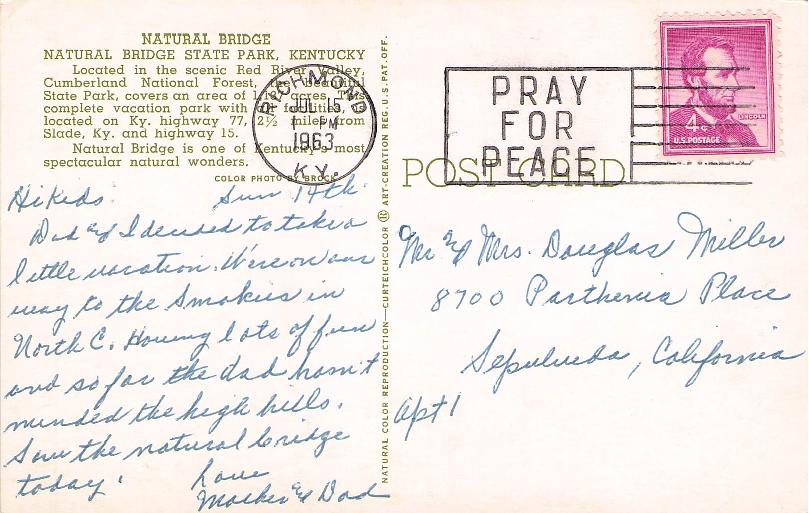 NATURAL BRIDGE
NATURAL BRIDGE STATE PARK, KENTUCKY
Located in the scenic Red River Valley,
Cumberland National Forest, State Park, covers an area of acres. This
complete vacation park with facilities is
located on Ky. highway 77, 2½ miles from
Slade, Ky. and highway 15.
Natural Bridge is one of Kentucky's most
spectacular natural wonders.
COLOR PHOTO BY BROCK
Hi Kids. Sun 14th.
Dad & I decided to take a
little vacation. We're on our
way to the Smokies in
North C. Having lots of fun
and so far the dad hasn't
minded the high hills.
Saw the natural bridge
today.
Love
Mother & Dad
NATURAL COLOR REPRODUCTION—CURTEICHCOLOR ® ART-CREATION REG. U.S. PAT. OFF.
RICHMOND
JUL 15
PM
1963
KY.
PRAY
FOR
PEACE
4¢
LINCOLN
U.S. POSTAGE
POST CARD
Mr & Mrs. Douglas Miller
8700 Parthenia Place
Sepulveda, California
Apt 1